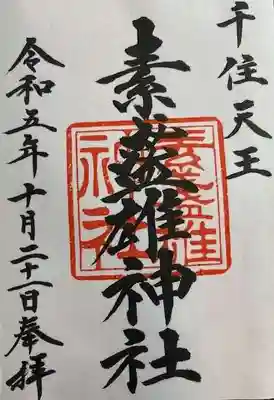 千住天王
素盞雄神社
素盞雄
神社
令和五年十月二十一日奉拝